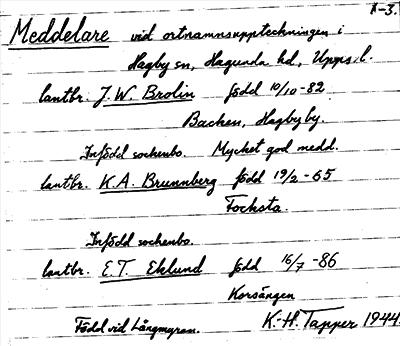 A-3.
Meddelare vid ortnamnsuppteckningen i
Hagby sn, Hagunda hd, Upps. l.
lantbr. J. W. Brolin född 10/10-82
Backen, Hagby by.
Infödd sockenbo. Mycket god medd.
lantbr. K. A. Brunnberg född 19/2-65
Focksta.
Infödd sockenbo.
lantbr. E. T. Eklund född 16/7-86
Korsängen
Född vid Långmyran. K.-H. Tapper 1944.